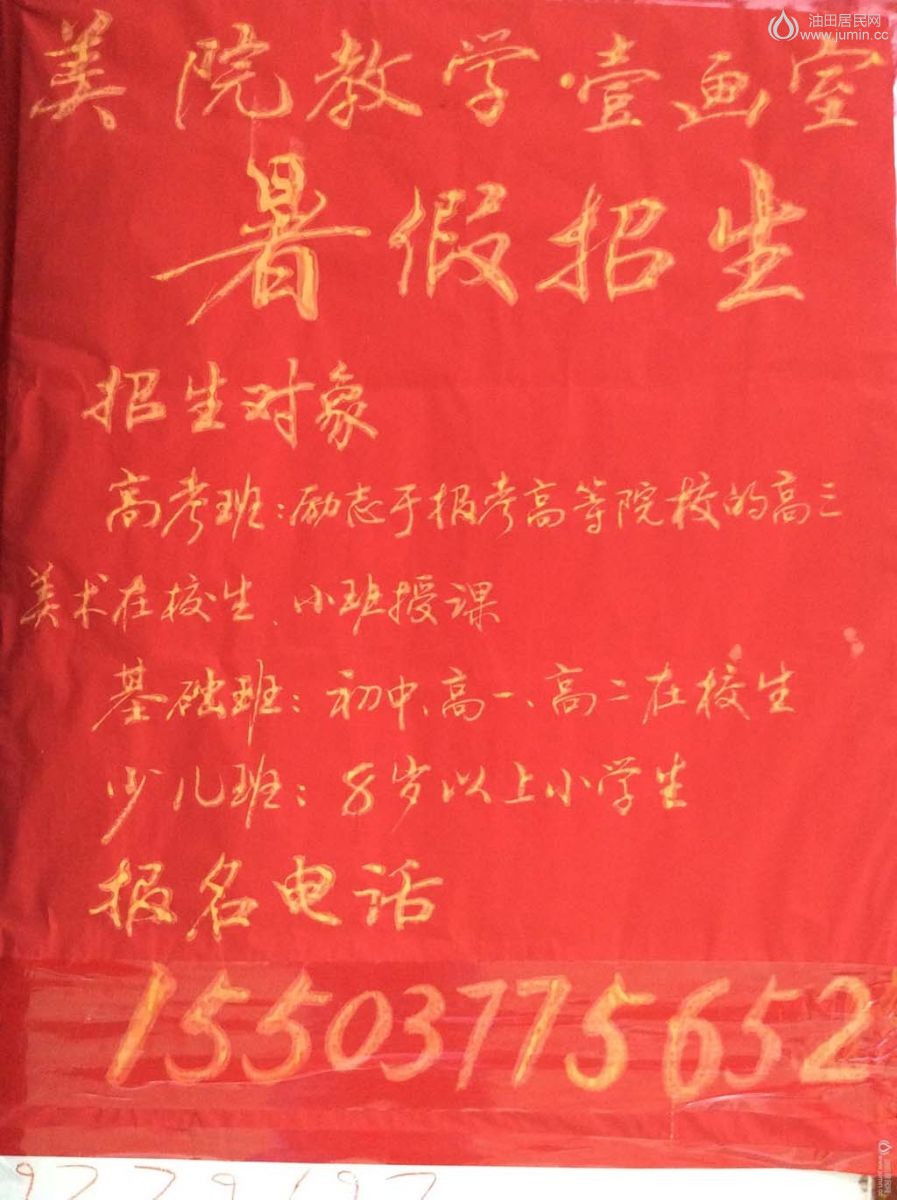 油田居民网
www.jumin.cc
美院教学·壹画室
暑假招生
招生对象
高考班:励志于报考高等院校的高三
美术在校生、小班授课
基础班:初中、高一、高二在校生
少儿班:8岁以上小学生
报名电话
15503775652